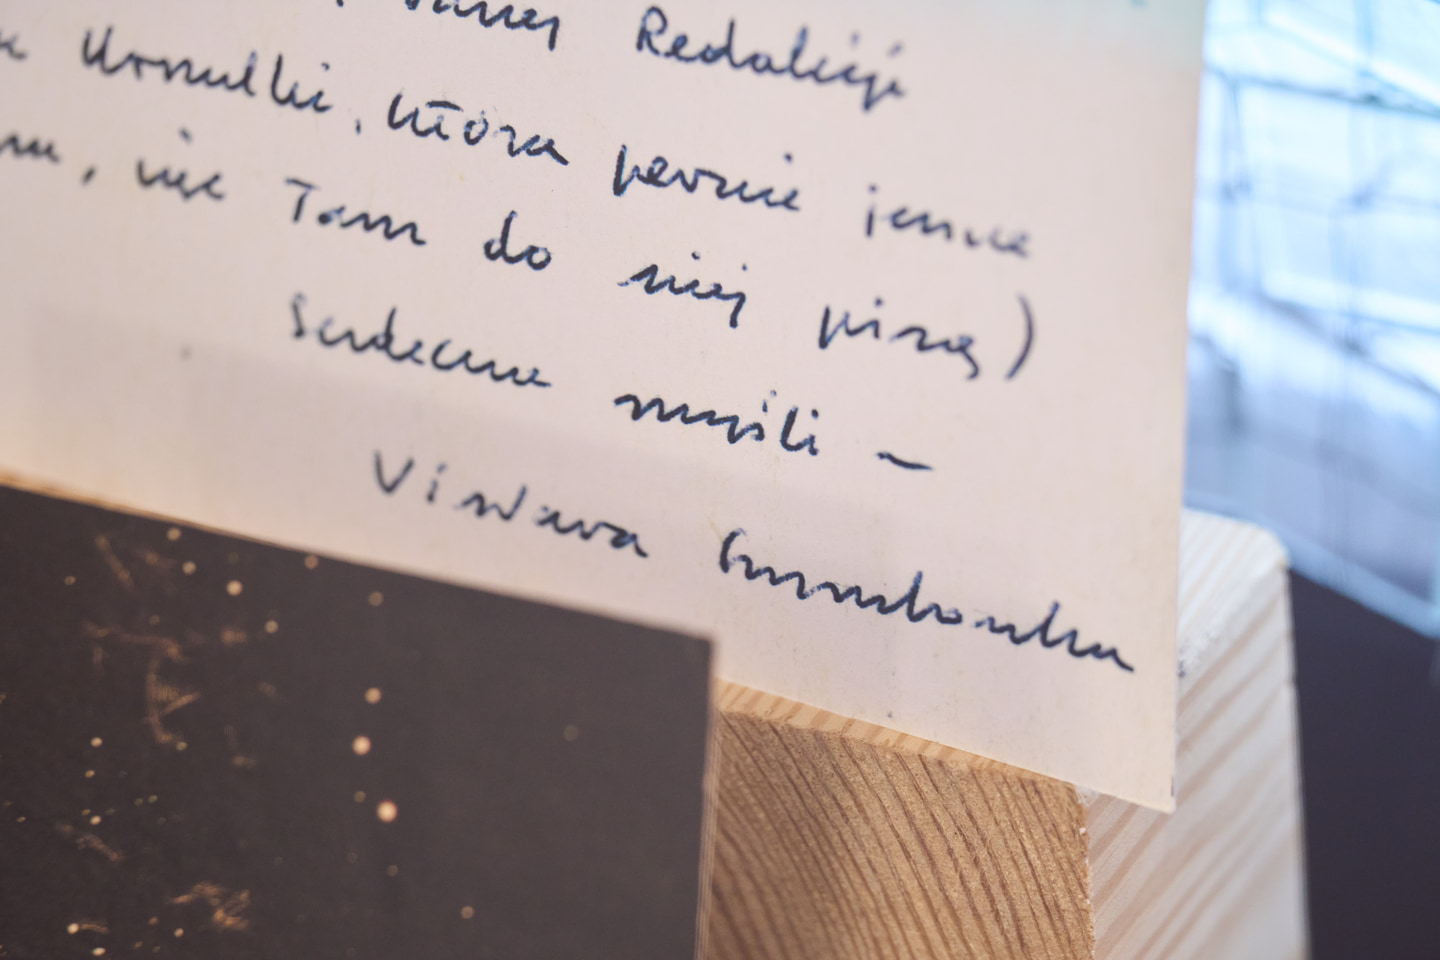 Waszej Redakcji
Urszulki, która pewnie jeszcze
, więc Tam do niej piszę)
Serdeczne myśli –
Wisława Szymborska